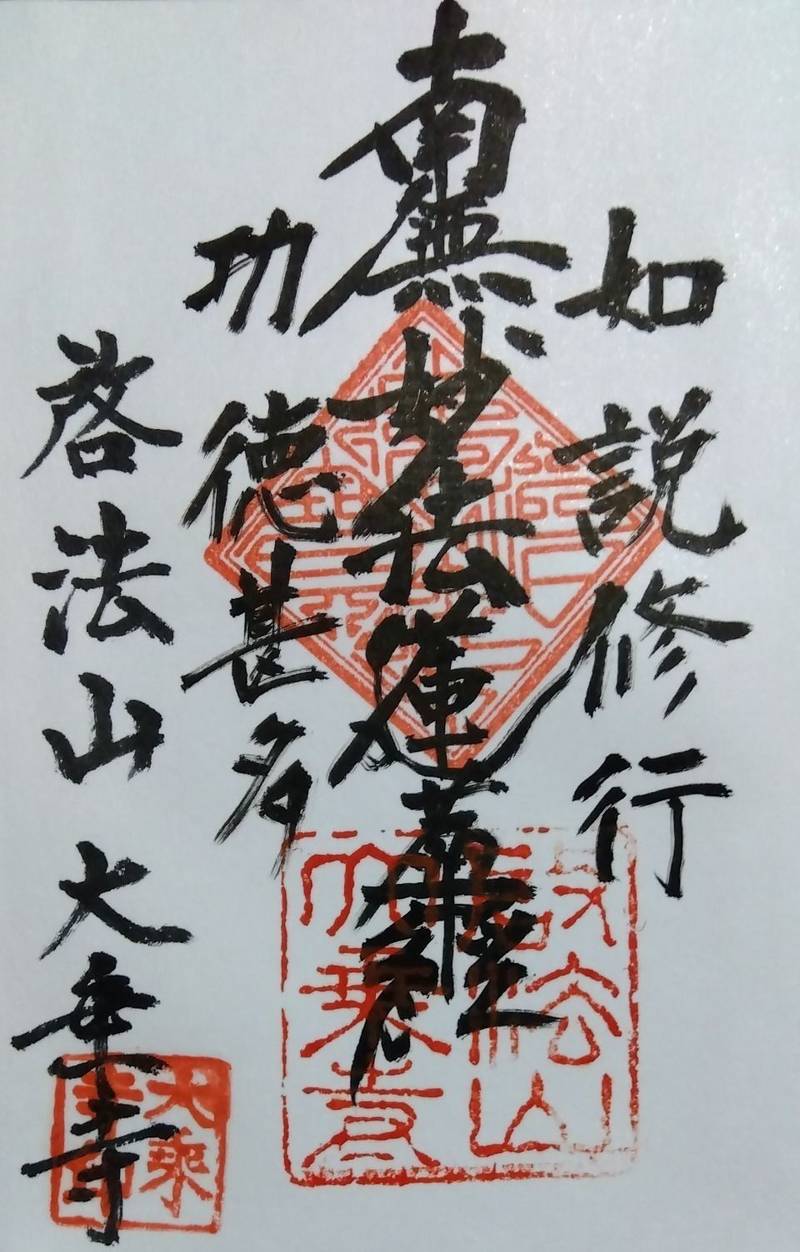 如説修行
南無妙法蓮華経
功徳甚多
啓法山 大乗寺
啓法山
大乗寺
大乗
寺印